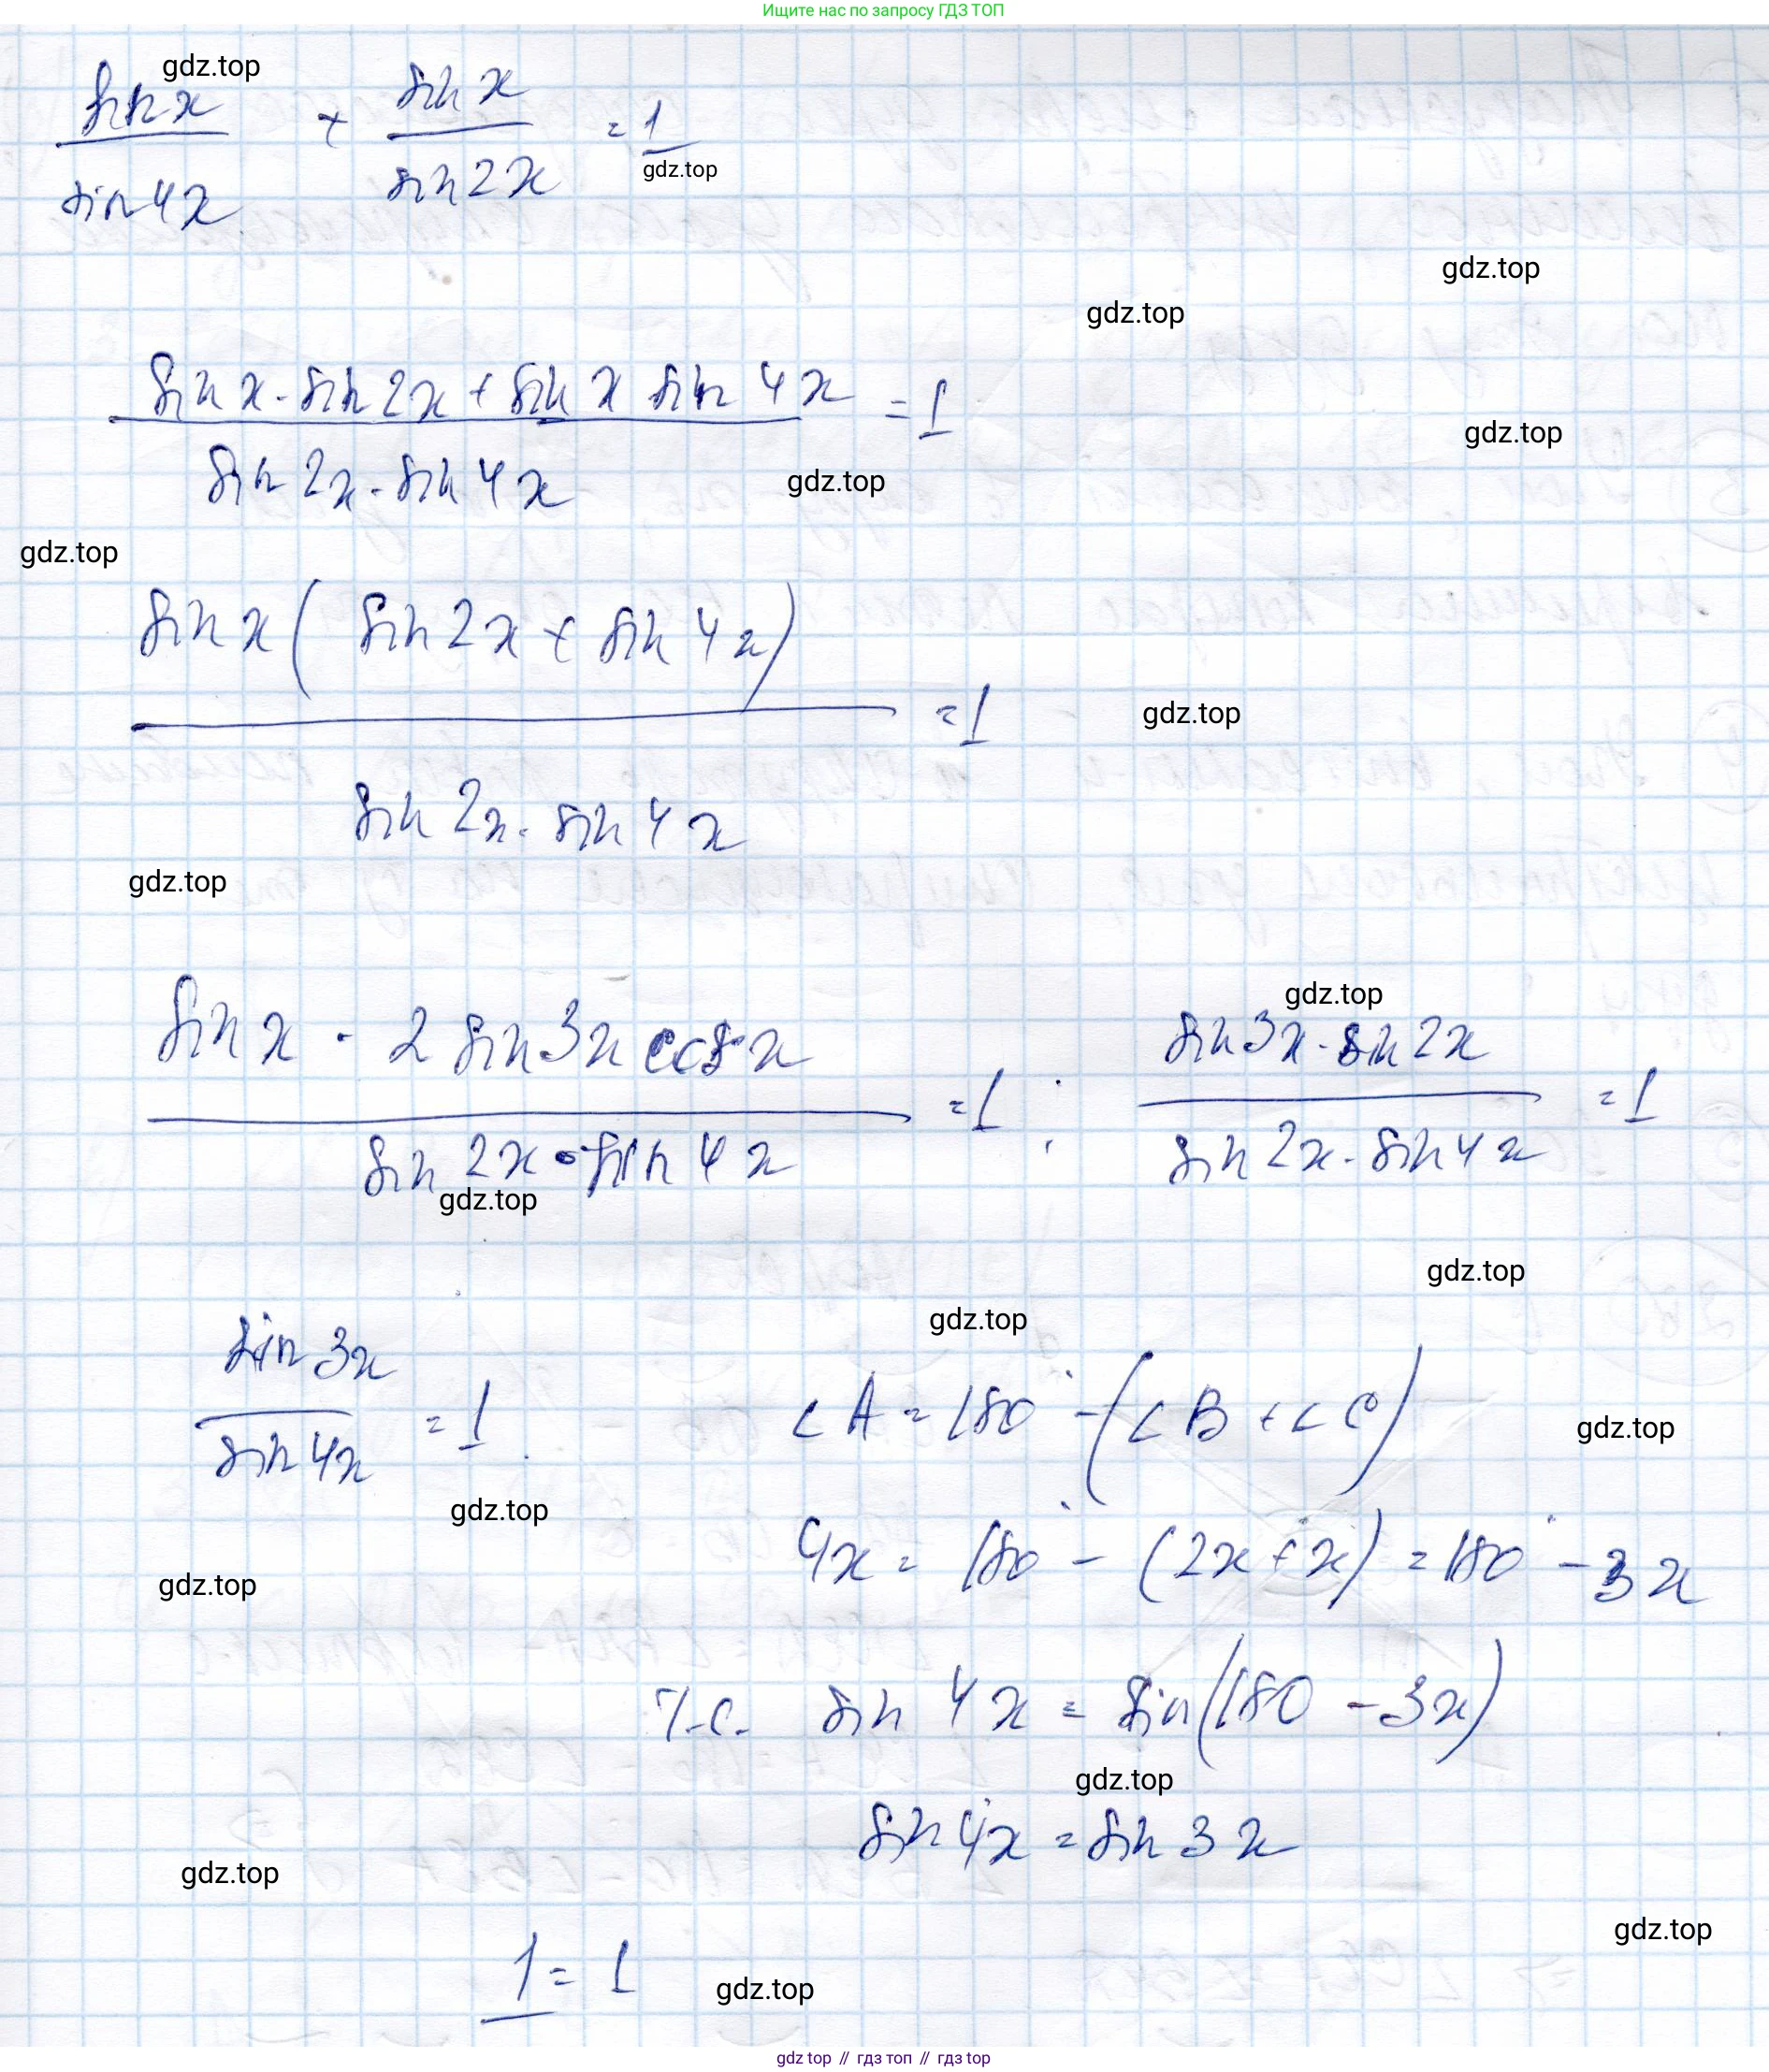 Ищите нас по запросу ГДЗ ТОП
gdz.top
sin x / sin 4x + sin x / sin 2x = 1
gdz.top
gdz.top
gdz.top
sin x · sin 2x + sin x sin 4x / sin 2x · sin 4x = 1
gdz.top
gdz.top
gdz.top
sin x ( sin 2x + sin 4x ) / sin 2x · sin 4x = 1
gdz.top
gdz.top
gdz.top
sin x · 2 sin 3x cos x / sin 2x · sin 4x = 1 ; sin 3x · sin 2x / sin 2x · sin 4x = 1
gdz.top
gdz.top
gdz.top
sin 3x / sin 4x = 1
∠A = 180° - (∠B + ∠C)
gdz.top
gdz.top
4x = 180° - (2x + x) = 180° - 3x
gdz.top
т.е. sin 4x = sin(180 - 3x)
gdz.top
sin 4x = sin 3x
gdz.top
gdz.top
1 = 1
gdz.top
gdz top // гдз топ // гдз top